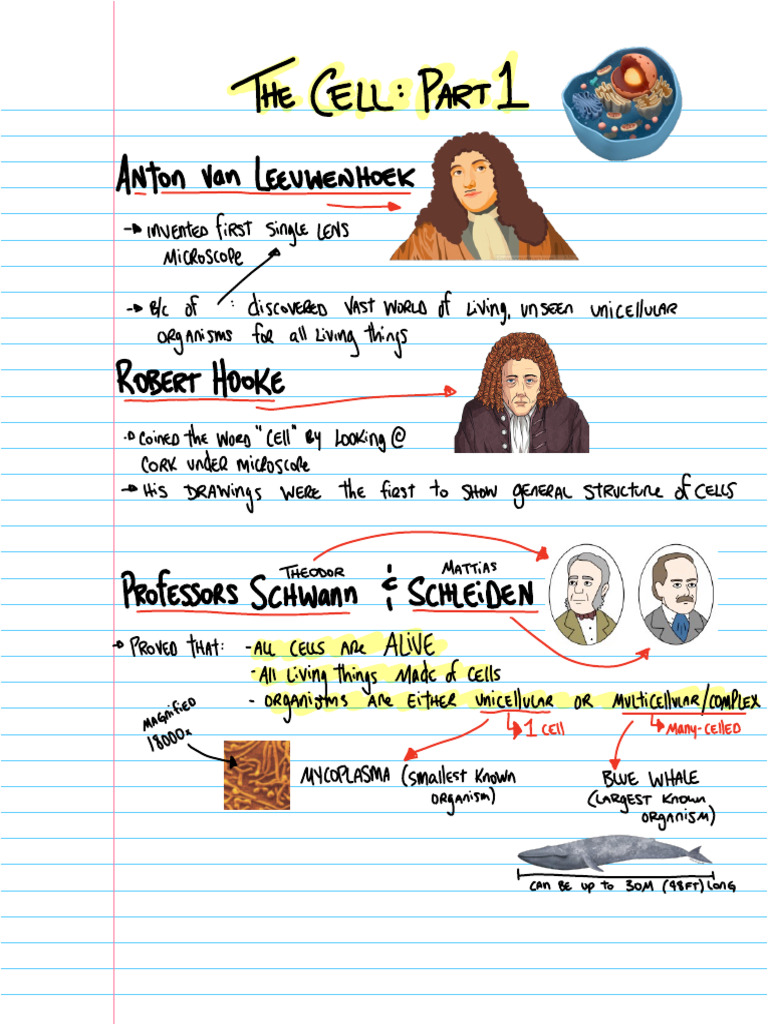 THE CELL: PART 1
ANTON VAN LEEUWENHOEK
→ INVENTED FIRST SINGLE LENS
MICROSCOPE
→ B/C OF : DISCOVERED VAST WORLD OF LIVING, UNSEEN UNICELLULAR
ORGANISMS FOR ALL LIVING THINGS
ROBERT HOOKE
→ COINED THE WORD "CELL" BY LOOKING @
CORK UNDER MICROSCOPE
→ HIS DRAWINGS WERE THE FIRST TO SHOW GENERAL STRUCTURE OF CELLS
THEODOR MATTIAS
PROFESSORS SCHWANN & SCHLEIDEN
→ PROVED THAT: - ALL CELLS ARE ALIVE
- ALL LIVING THINGS MADE OF CELLS
- ORGANISMS ARE EITHER UNICELLULAR OR MULTICELLULAR/COMPLEX
↳ 1 CELL ↳ MANY-CELLED
MAGNIFIED
18000x
MYCOPLASMA (SMALLEST KNOWN
ORGANISM)
BLUE WHALE
(LARGEST KNOWN
ORGANISM)
CAN BE UP TO 30M (98FT) LONG